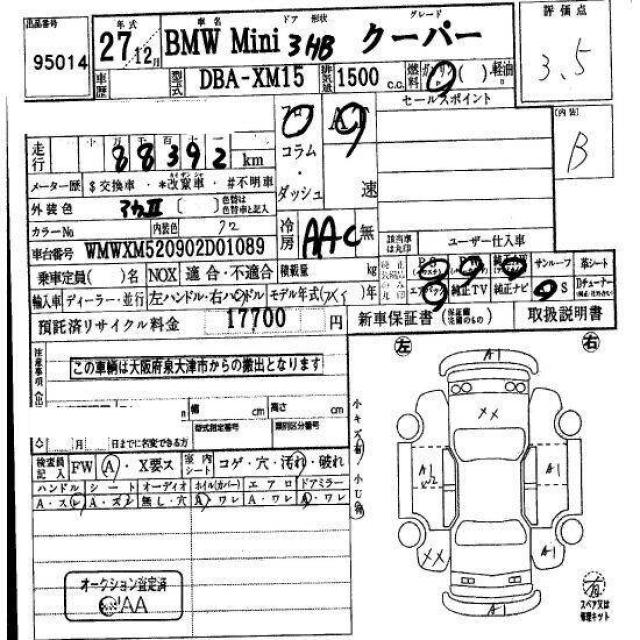 出品番号 年式 車名 ドア 形状 グレード 評価点
95014 27/12月 BMW Mini 3HB クーパー 3.5
車歴 型式 DBA-XM15 排気量 1500 c.c. 燃料 ガソリン ( ) ・軽油
セールスポイント
十 万 千 百 十 一 フロア AT [内装]
走行 88392 km コラム B
メーター歴 $ 交換車 ・ *改竄車 ・ #不明車 ・
ダッシュ 速
外装色 [ ] 色替は色替車と記入
カラーNo 内装色 クロ 冷房 AAC 無 該当車は丸印 ユーザー仕入車
車台番号 WMWXM520902D01089
乗車定員( )名 NOX 適合・不適合 積載量 kg 純正 PS PW サンルーフ 革シート
輸入車 ディーラー・並行 左ハンドル・右ハンドル モデル年式( )年 エアバック 純正TV 純正ナビ S Dチューナー
預託済リサイクル料金 17700 円 新車保証書 (保証書 記載のもの) 取扱説明書
注意事項 左 右
この車輌は大阪府泉大津市からの搬出となります A1
幅 cm 高さ cm
型式指定番号 類別区分番号 小キズ有
◇ 月 日までに名変できる方 XX
検査員記入 FW A ・ X要ス 室内シート コゲ・穴・汚れ・破れ 小U有
ハンドル シート オーディオ ホイル(カバー) エアロ ドアミラー A1 A1
A・スレ A・ズレ 無し・穴 A・ワレ A・ワレ A・ワレ W2
XX A1
オークション査定済
AA 有
A1 スペア又は修理キット